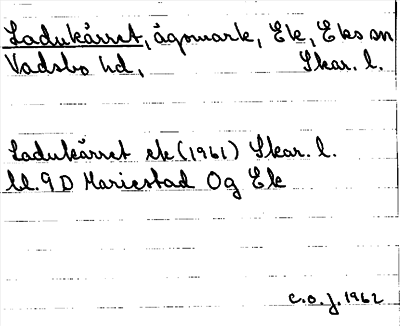 Ladukärret, ägomark, Ek, Eks sn
Vadsbo hd, Skar. l.
Ladukärret ek (1961) Skar. l.
bl. 9D Mariestad Og Ek
c.o.j. 1962